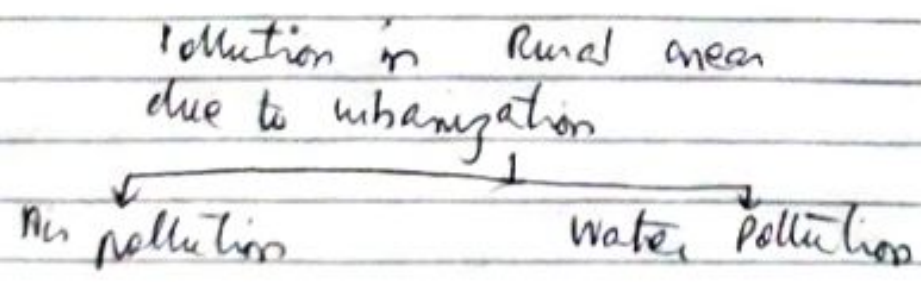 Pollution in Rural areas
due to urbanization
Air pollution
Water Pollution